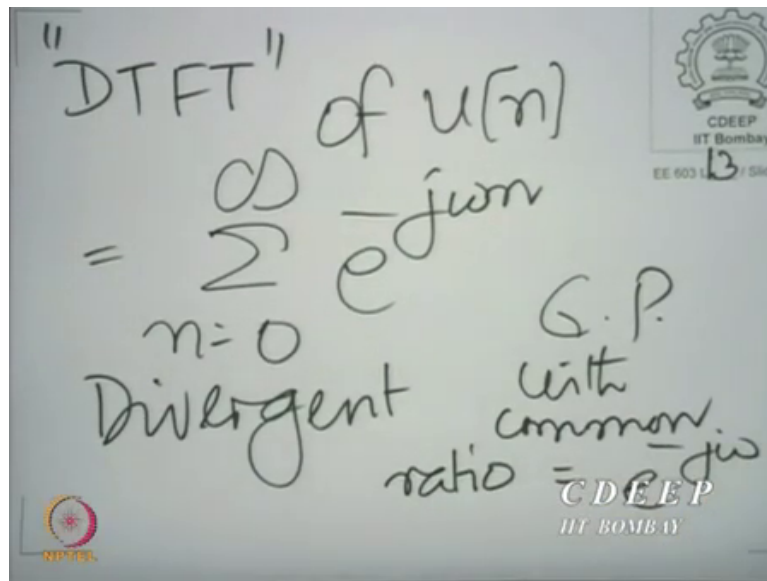 "DTFT" of u[n]
∞
= Σ e^-jωn
n=0
Divergent
G.P.
with
common
ratio = e^-jω
CDEEP
IIT Bombay
EE 603 L 13 / Sli
CDEEP
IIT BOMBAY
NPTEL